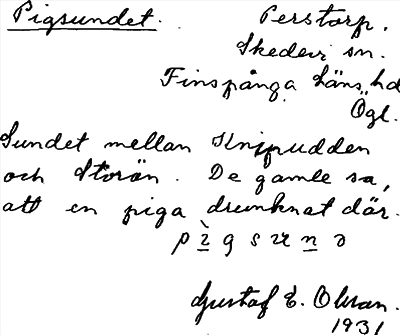 Pigsundet. Perstorp.
Skedevi sn.
Finspånga läns hd
Ögl.
Sundet mellan Knipudden
och Storön. De gamle sa,
att en piga drunknat där.
Gustaf E. Olsson.
1931